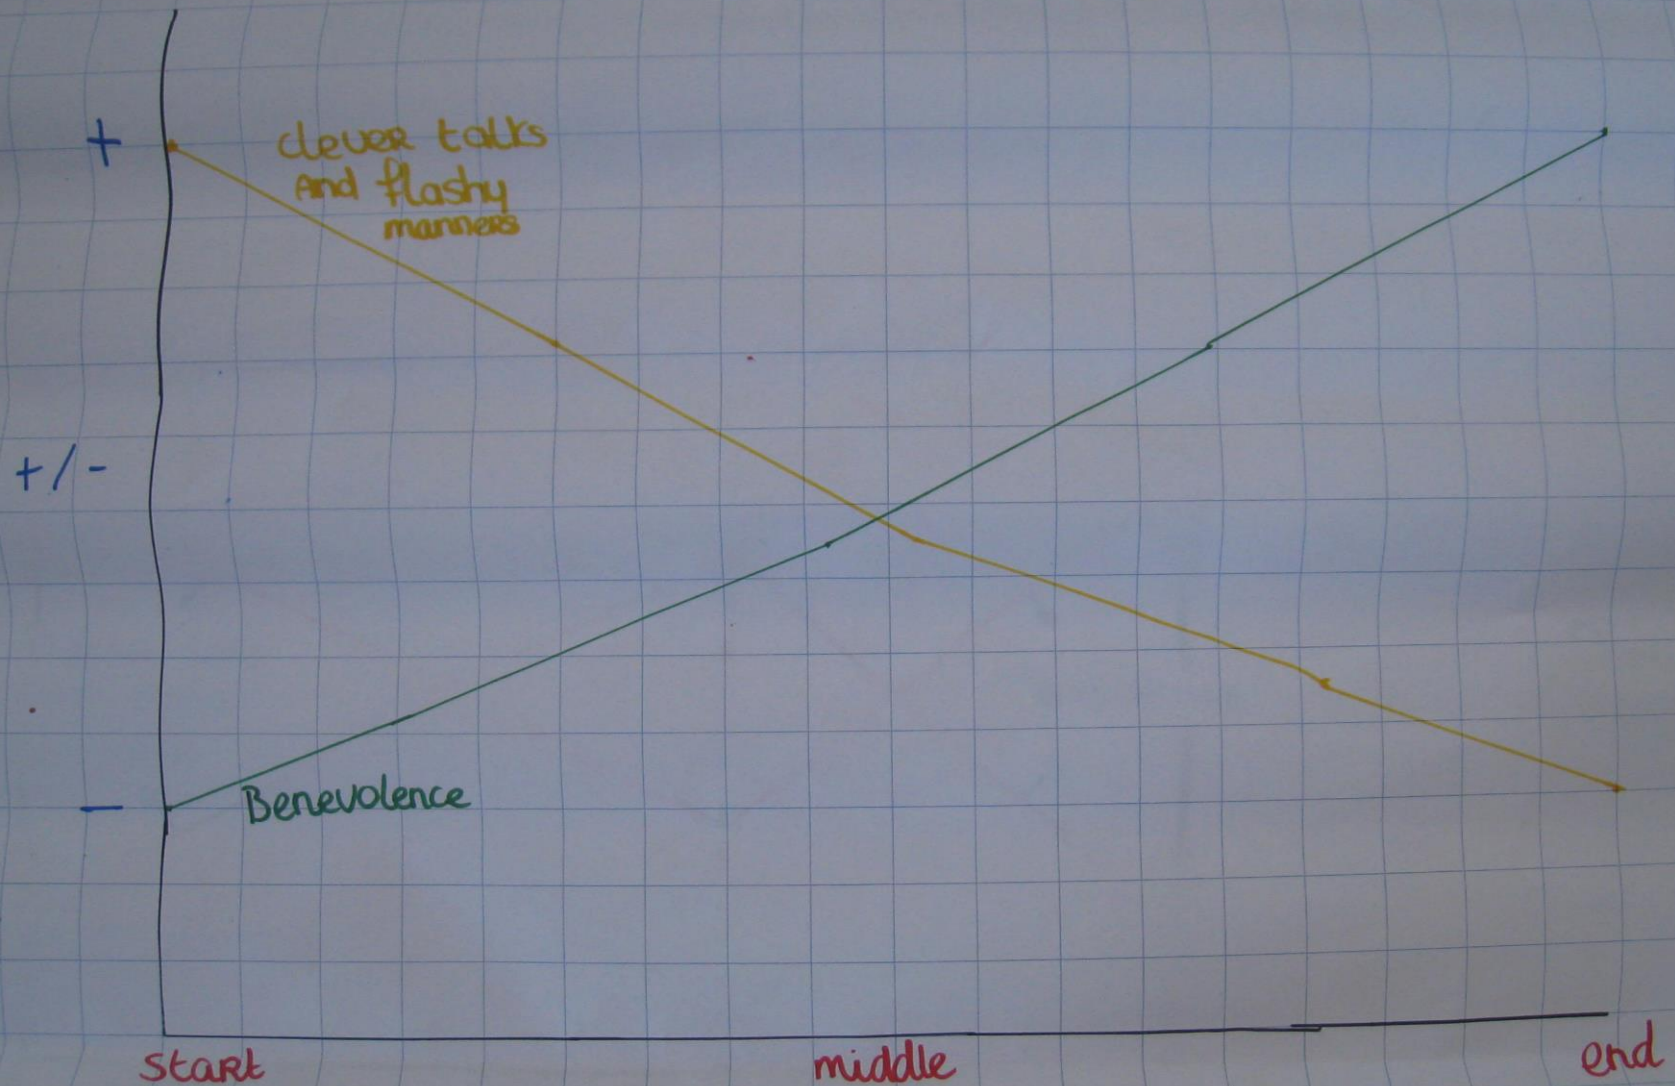 +
clever talks
And flashy
manners
+/-
Benevolence
-
start
middle
end